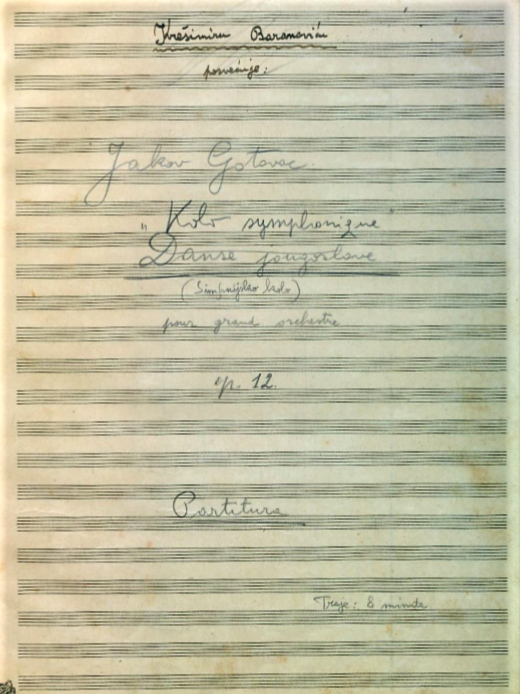 Krešimiru Baranoviću
posvećuje:
Jakov Gotovac
"Kolo symphonique"
Danse yougoslave
(Simfonijsko kolo)
pour grand orchestre
op. 12.
Partitura
Traje: 8 minuta